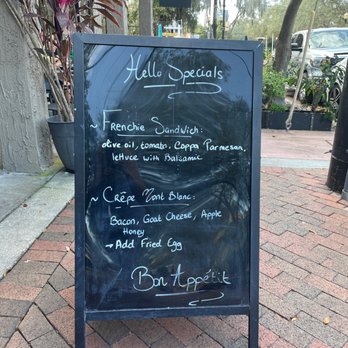 Hello Specials
~ Frenchie Sandwich:
olive oil, tomato, Coppa Parmesan,
lettuce with Balsamic
~ Crêpe Mont Blanc:
Bacon, Goat Cheese, Apple
Honey
→ Add Fried Egg
Bon Appétit